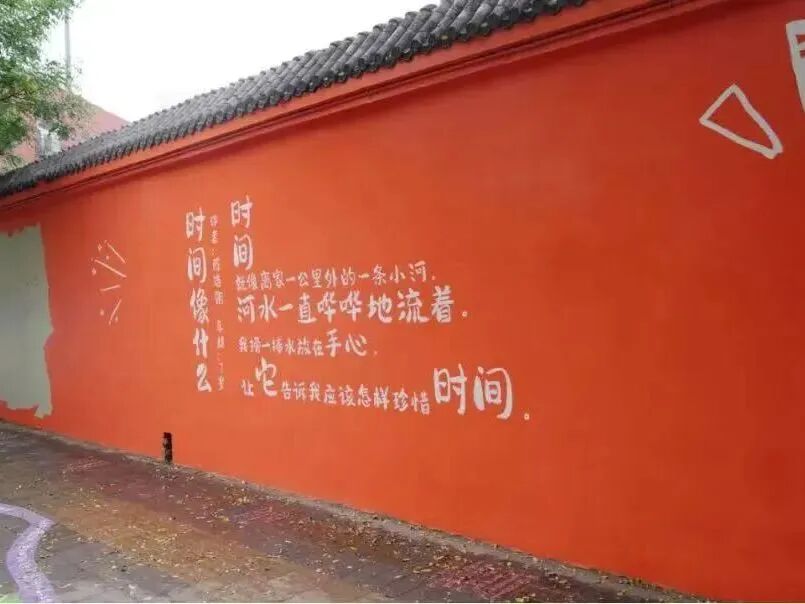 时间像什么
作者： 年龄：7岁
时间
就像离家一公里外的一条小河，
河水一直哗哗地流着。
我捞一捧水放在手心，
让它告诉我应该怎样珍惜时间。